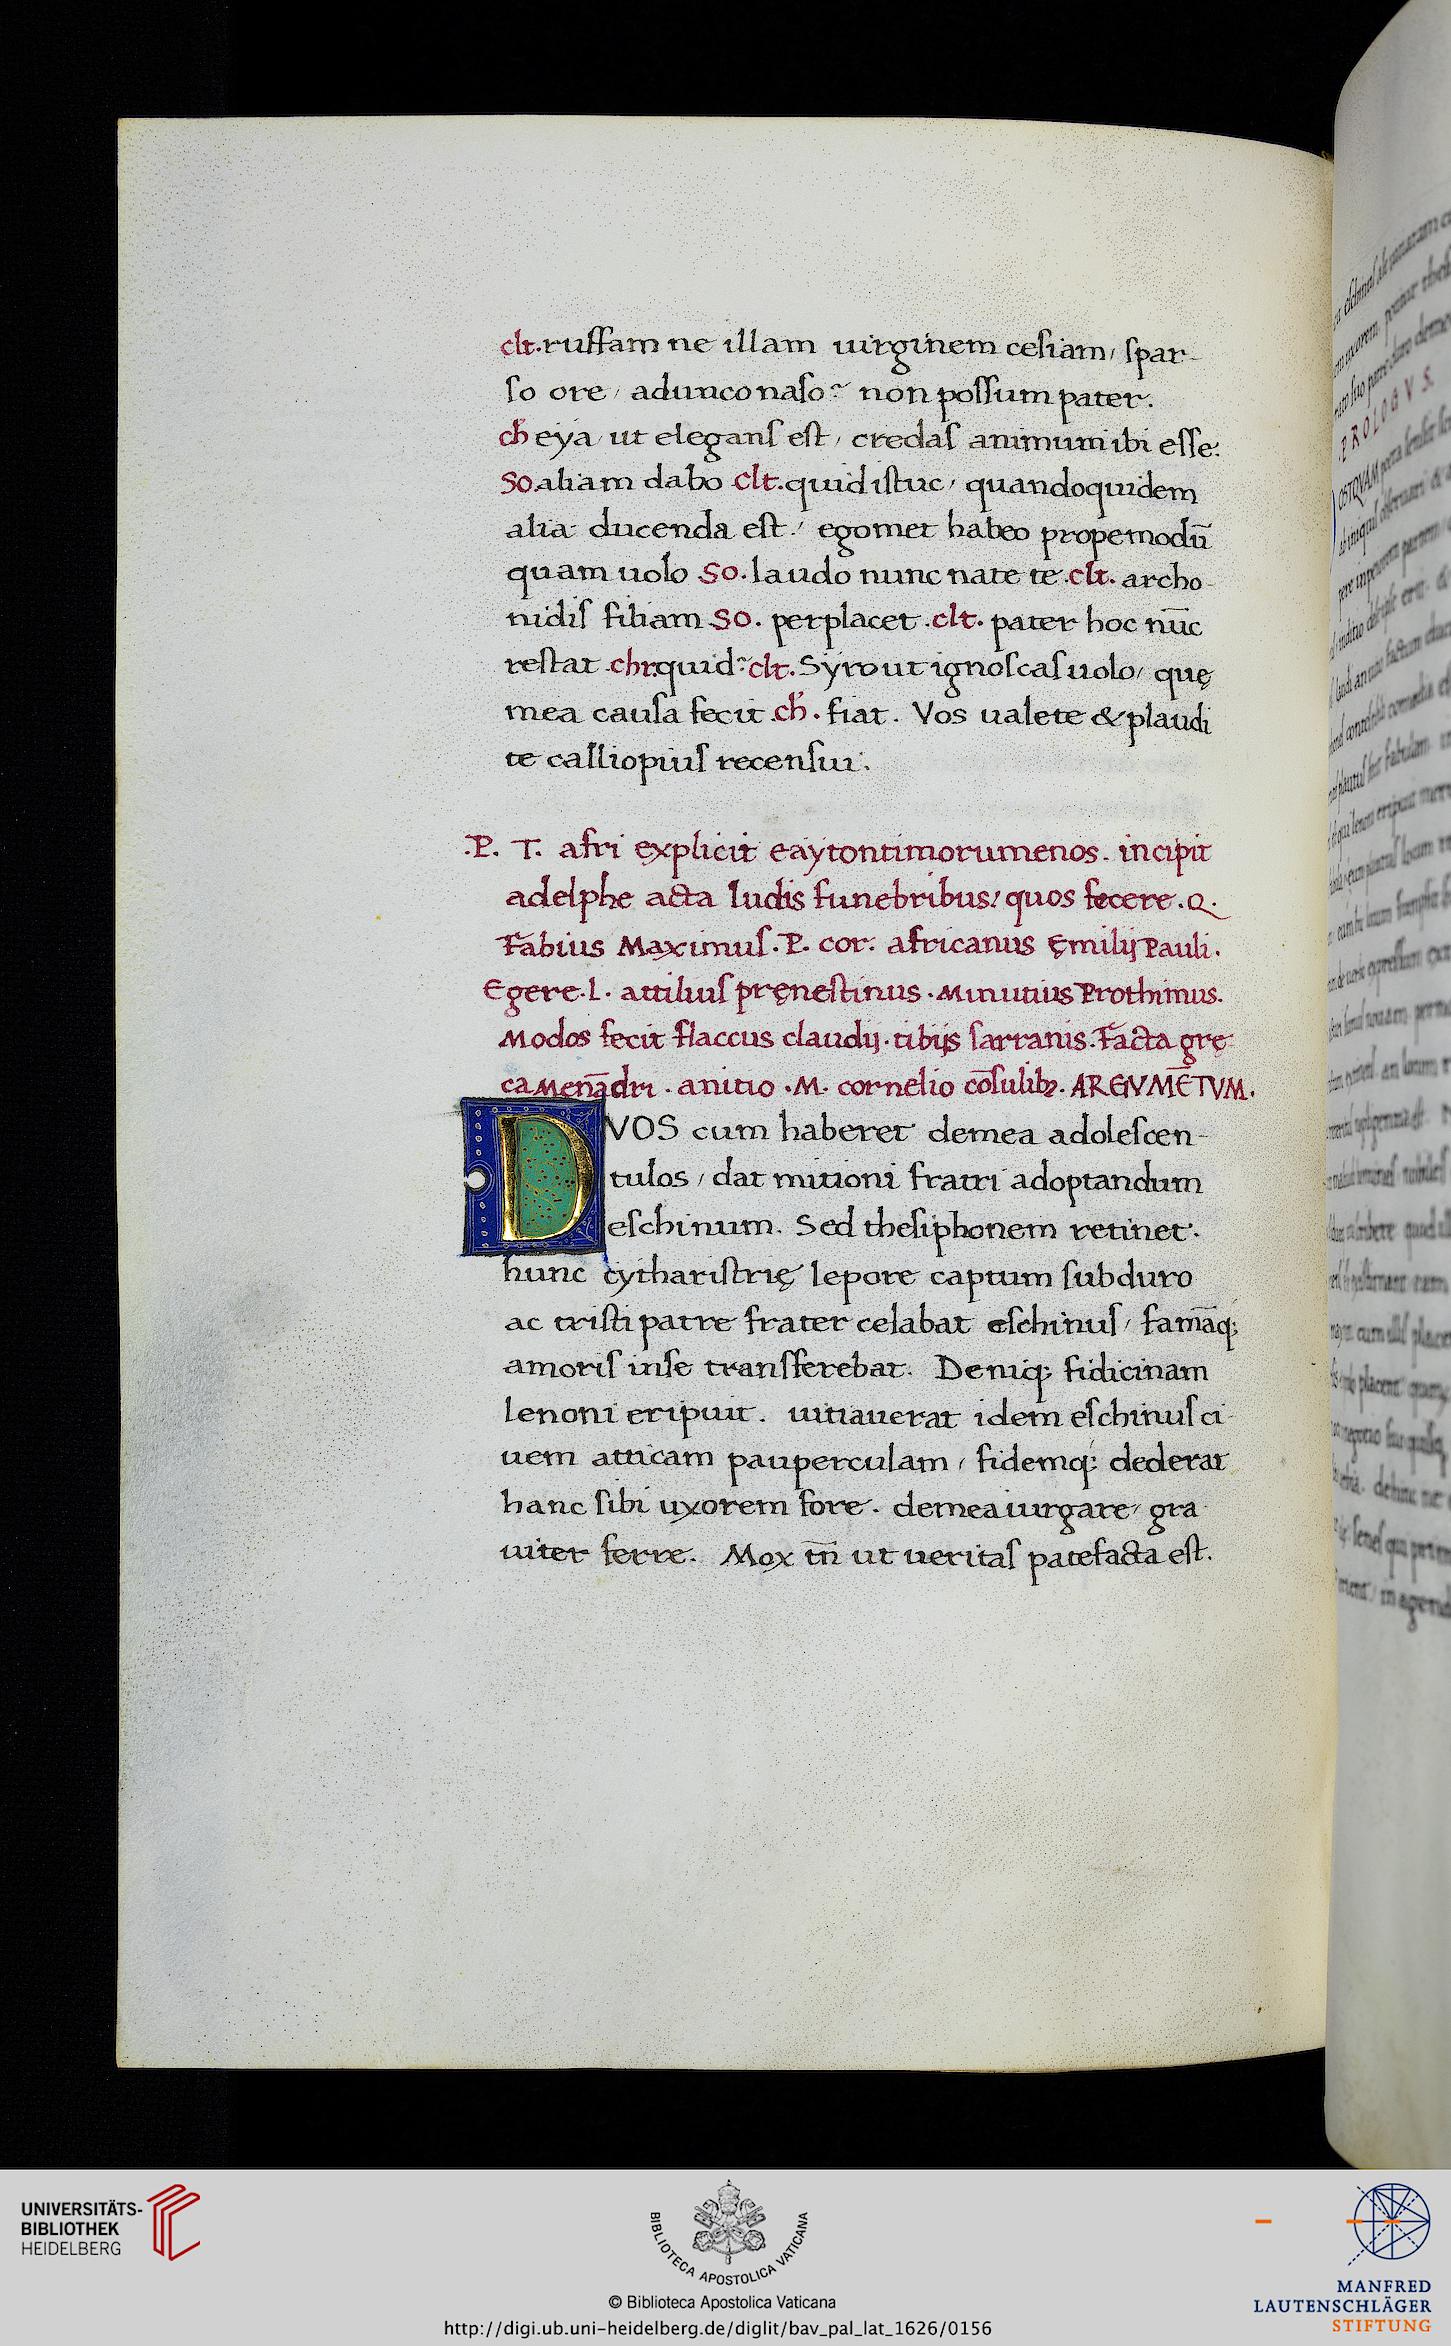 clt. ruffam ne illam uirginem cesiam, spar-
so ore, adunco naso? non possum pater.
ch eya ut elegans est, credas animum ibi esse.
SO. aliam dabo clt. quid istuc, quandoquidem
alia ducenda est, egomet habeo propemodū
quam uolo SO. laudo nunc nate te. clt. archo-
nidis filiam SO. perplacet. clt. pater hoc nūc
restat. chr. quid? clt. Syro ut ignoscas uolo, quę
mea causa fecit. ch. fiat. Vos ualete & plaudi
te calliopius recensui.
.P. T. afri explicit eaytontimorumenos. incipit
adelphe acta ludis funebribus, quos fecere. Q.
Fabius Maximus. P. cor. africanus Ęmilij Pauli.
Egere. l. attilius pręnestinus. Minutius Prothimus.
Modos fecit flaccus claudij. tibijs sarranis. Facta grę
ca Menādri. anitio. M. cornelio cōsulibꝫ. ARGVMĒTVM.
DVOS cum haberet demea adolescen-
tulos, dat mitioni fratri adoptandum
eschinum. Sed thesiphonem retinet.
hunc cytharistrię lepore captum sub duro
ac tristi patre frater celabat eschinus, famāq;
amoris in se transferebat. Deniq; fidicinam
lenoni eripuit. uitiauerat idem eschinus ci-
uem atticam pauperculam, fidemq; dederat
hanc sibi uxorem fore. demea iurgare, gra
uiter ferre. Mox tn̄ ut ueritas patefacta est.
PROLOGVS.
UNIVERSITÄTS-
BIBLIOTHEK
HEIDELBERG
BIBLIOTECA APOSTOLICA VATICANA
© Biblioteca Apostolica Vaticana
http://digi.ub.uni-heidelberg.de/diglit/bav_pal_lat_1626/0156
MANFRED
LAUTENSCHLÄGER
STIFTUNG